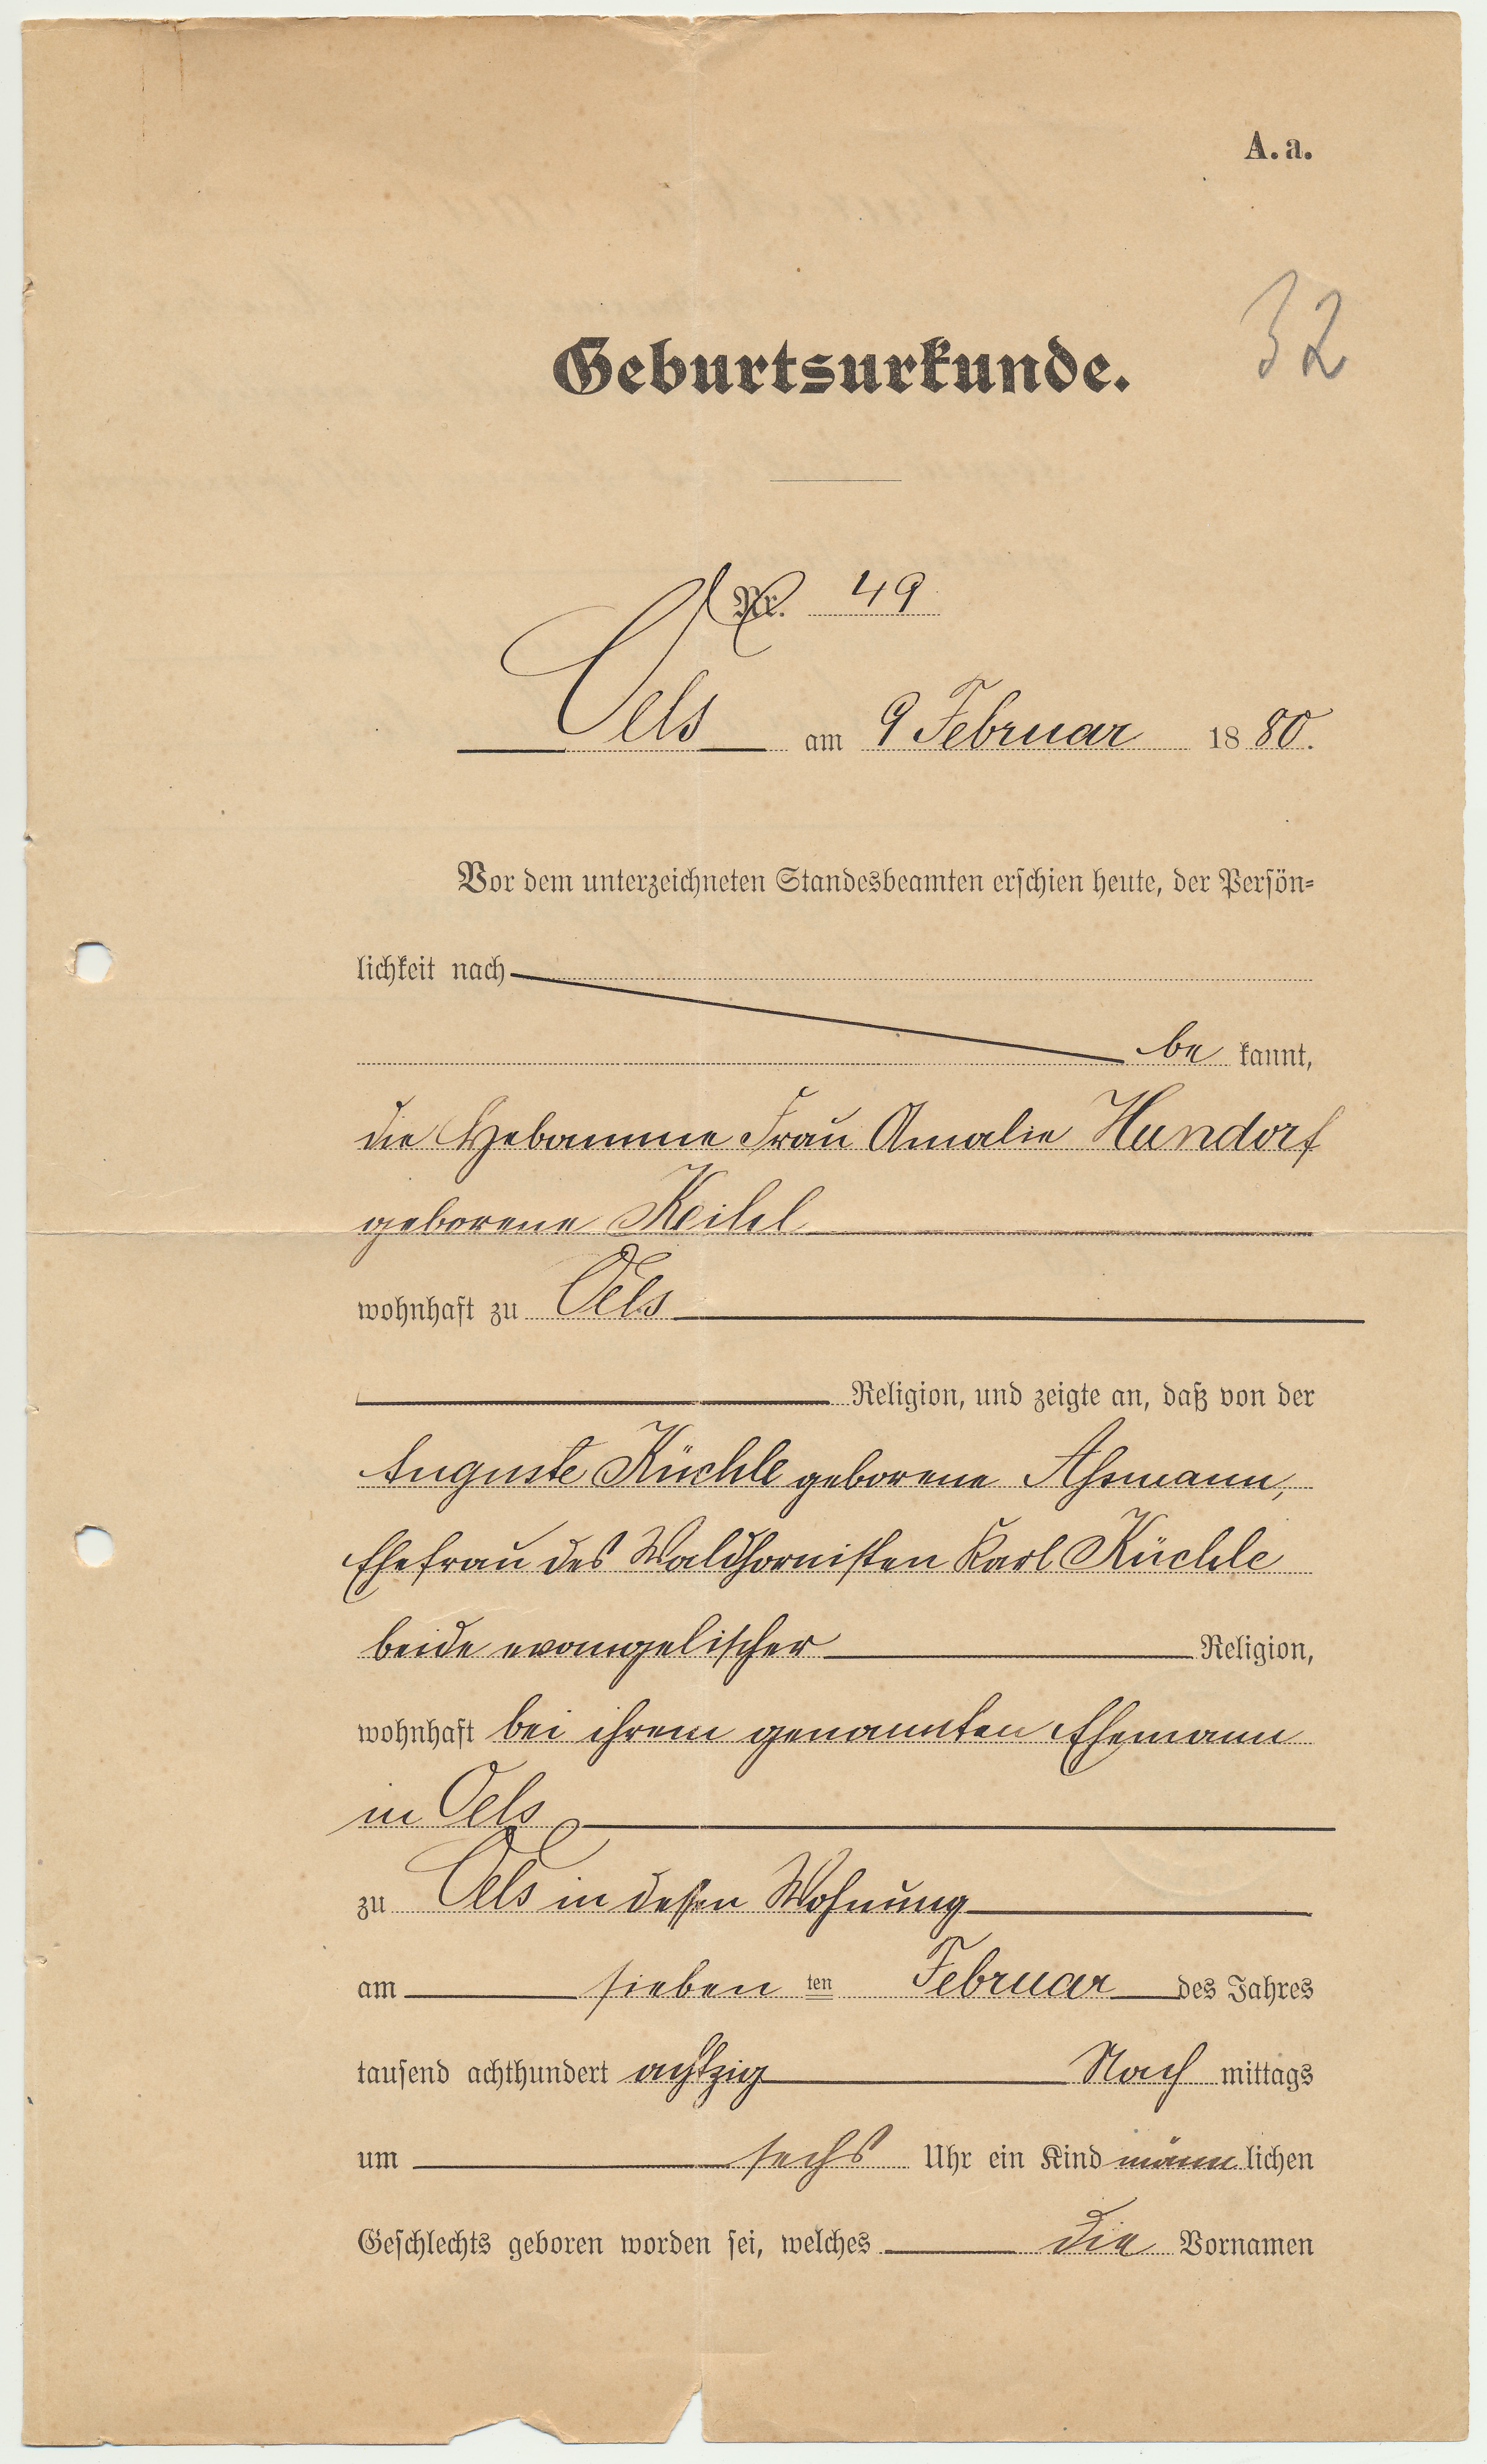 A. a.
32
Geburtsurkunde.
Nr. 49
Oels am 9 Februar 1880.
Vor dem unterzeichneten Standesbeamten erschien heute, der Persön-
lichkeit nach
be kannt,
die Hebamme Frau Amalie Hundorf
geborene Keilel
wohnhaft zu Oels
Religion, und zeigte an, daß von der
Auguste Küchle geborene Aßmann,
Ehefrau des Waldhornisten Karl Küchle
beide evangelischer Religion,
wohnhaft bei ihrem genannten Ehemann
in Oels
zu Oels in dessen Wohnung
am sieben ten Februar des Jahres
tausend achthundert achtzig Nach mittags
um sechs Uhr ein Kind männ lichen
Geschlechts geboren worden sei, welches die Vornamen